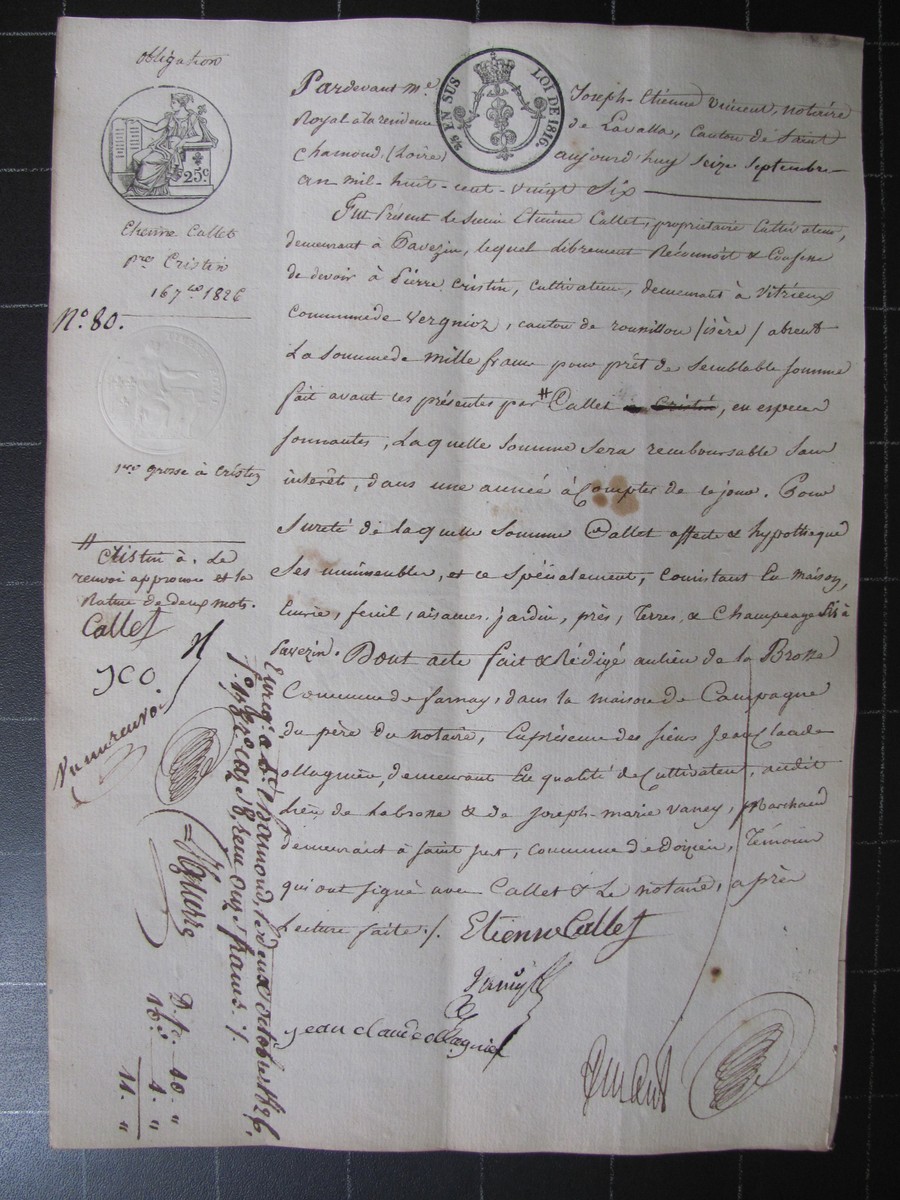 obligation
25c
Etienne Callet
pre Cristin
16 7bre 1826
No. 80.
1ere grosse à Cristin
#
Cristin à. Le
renvoi approuvé et la
Rature de deux mots.
Callet
JCO
Vu au renvoi
Enreg. à St Chamond, le deux octobre 1826
onze francs
D. p.l 10 "
10e 1 "
11. "
4/5 EN SUS LOI DE 1816.
Pardevant Me Joseph-Etienne Vincent, notaire
Royal à la résidence de Lavalla, Canton de Saint
Chamond (Loire) aujourd'huy Seize Septembre
an mil-huit-cent-vingt Six
Fut Présent le sieur Etienne Callet, propriétaire Cultivateur,
demeurant à Pavezin, lequel librement Reconnoit & Confesse
de devoir à Pierre Cristin, Cultivateur, demeurant à Vitrieux
Commune de Vergnioz, canton de rounillon /isère/ absent
La Somme de mille francs pour prêt de Semblable Somme
fait avant ces présentes par # Callet Cristin, en especes
Sonnantes, Laquelle Somme Sera remboursable Sans
intérêts, dans une année à Compter de ce jour. Pour
Sureté de laquelle Somme Callet affecte & hypotheque
Ses immeubles, et ce Spécialement, Consistant En maison,
Ecurie, fenil, aisances, jardin, près, Terres, & Champeage Sis à
Pavezin. Dont acte fait & Rédigé au lieu de la Brosse
Commune de farnay, dans la maison de Campagne
du père du notaire, En présence des sieurs Jean Claude
ollagnier, demeurant En qualité de Cultivateur, audit
Lieu de Labrosse & de Joseph-marie vaney, Marchand
demeurant à Saint just, Commune de Doizieu, Témoins
qui ont signé avec Callet & Le notaire, après
Lecture faite ./.
Etienne Callet
jean claude ollagnier